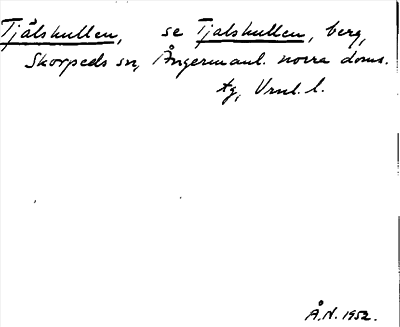 Tjålskullen, se Tjalskullen, berg,
Skorpeds sn, Ångermanl. norra doms.
tg, Vrnl. l.
Å.N. 1952.